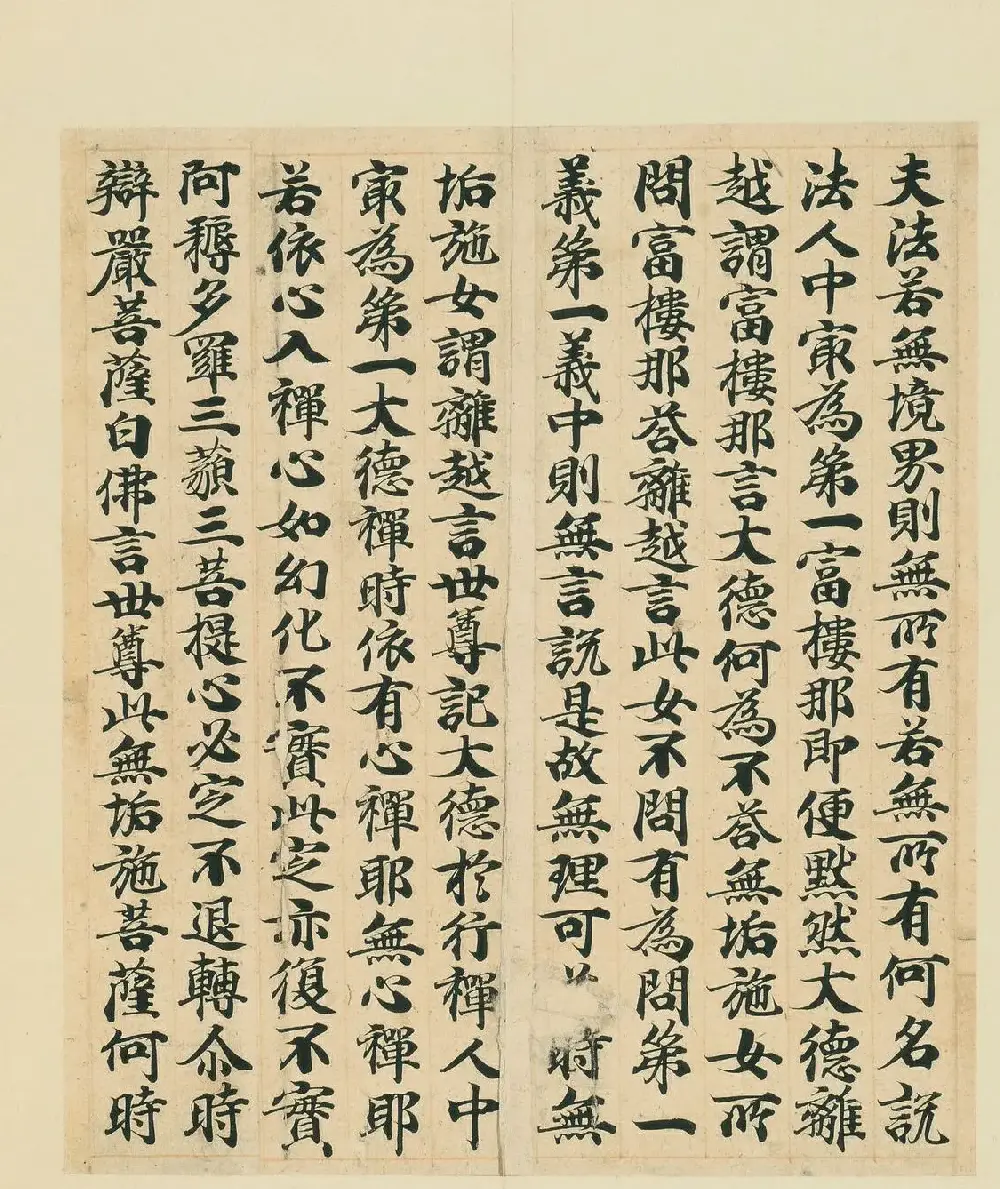 夫法若無境界則無所有若無所有何名説
法人中冣為第一富樓那即便默然大德離
越謂富樓那言大德何為不荅無垢施女所
問富樓那荅離越言此女不問有為問第一
義第一義中則無言説是故無理可時無
垢施女謂離越言世尊記大德於行禪人中
冣為第一大德禪時依有心禪耶無心禪耶
若依心入禪心如幻化不實此定亦復不實
阿耨多羅三藐三菩提心必定不退轉尒時
辯嚴菩薩白佛言世尊此無垢施菩薩何時